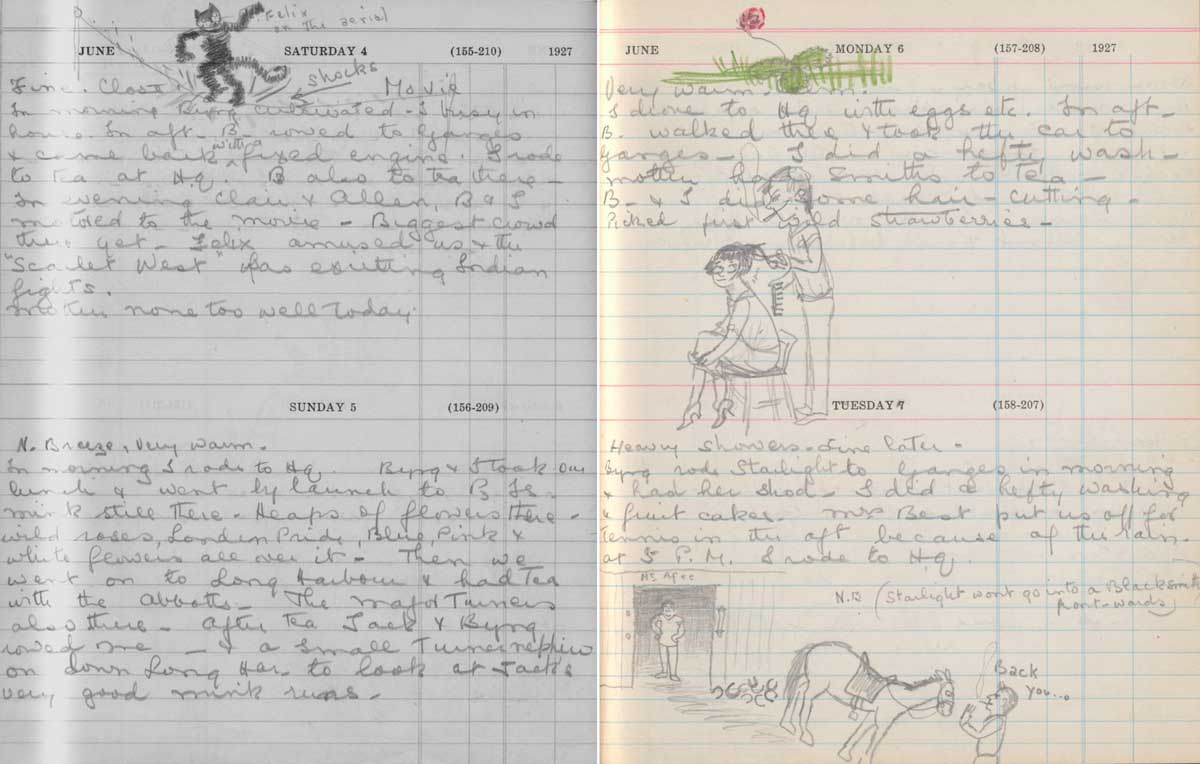 Felix
on the aerial
JUNE SATURDAY 4 (155-210) 1927
shocks
Fine. Movie
In morning cultivated - I busy in
house. In aft - B. rowed to Ganges
& came back with a fixed engine. I rode
to tea at H.Q. B also to tea there -
In evening Clair & Allen, B & I
motored to the movie - Biggest crowd
there yet - Felix amused us & the
"Scarlet West" has exciting Indian
fights.
Mother none too well today.
SUNDAY 5 (156-209)
N. Breeze, Very warm.
In morning I rode to Hq. Byng & I took our
lunch & went by launch to B Is.
mink still there - Heaps of flowers there -
wild roses, London Pride, Blue, Pink &
white flowers all over it - Then we
went on to Long Harbour & had Tea
with the Abbotts - The Major Turners
also there - After Tea Jack & Byng
rowed me - & a small Turner nephew
on down Long Har. to look at Jack's
very good mink runs -
JUNE MONDAY 6 (157-208) 1927
Very warm.
I drove to Hq with eggs etc. In aft -
B. walked there & took the car to
Ganges - I did a hefty wash -
mother had Smiths to Tea -
B - & I did some hair - cutting -
Picked first wild strawberries -
TUESDAY 7 (158-207)
Heavy showers - fine later -
Byng rode Starlight to Ganges in morning
& had her shod - I did a hefty washing
& fruit cakes - Mrs Best put us off for
tennis in the aft because of the rain.
at 5 P.M. I rode to H.Q.
Mc Afee
N.B (Starlight wont go into a Blacksmith
front-wards)
Back
you...